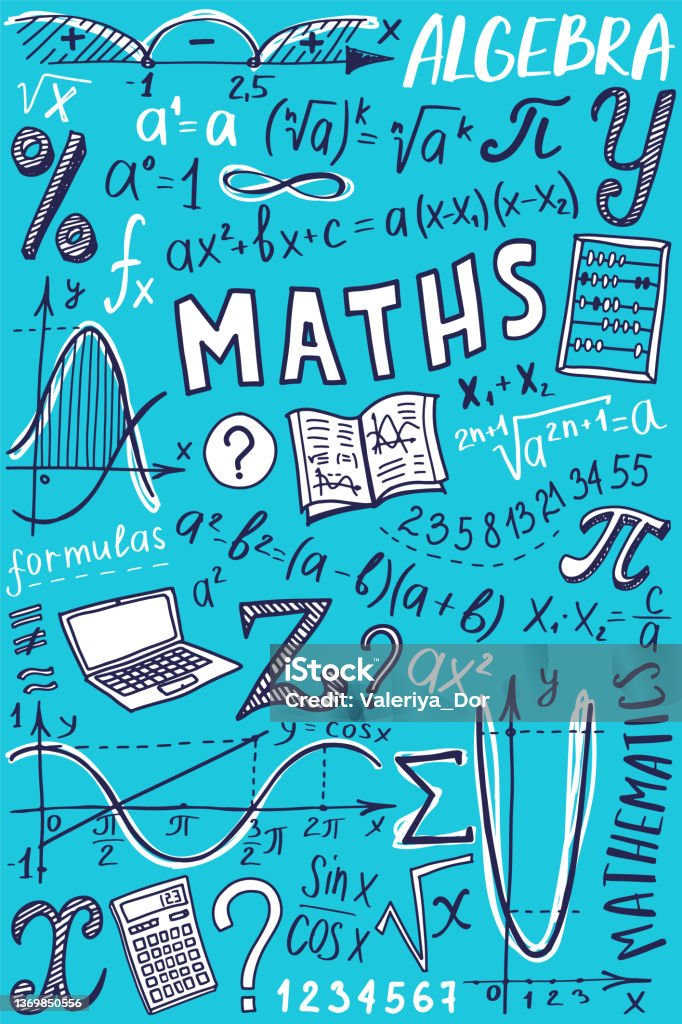 + − + x
-1 2,5
ALGEBRA
√x
a¹=a
(ⁿ√a)ᵏ=ⁿ√aᵏ
π
y
%
a⁰=1
∞
fx
ax²+bx+c=a(x-x₁)(x-x₂)
MATHS
y
x
0
?
x₁+x₂
²ⁿ⁺¹√a²ⁿ⁺¹=a
2 3 5 8 13 21 34 55
formulas
a²-b²=(a-b)(a+b)
a²
π
x₁·x₂=c/a
≡
≠
≈
z
?
ax²
iStock
Credit: Valeriya_Dor
MATHEMATICS
1
y
y=cosx
0 π/2 π 3/2π 2π x
-1
Σ
y
0 1 2 3 x
x
123
?
sinx/cosx
√x
1234567
1369850556